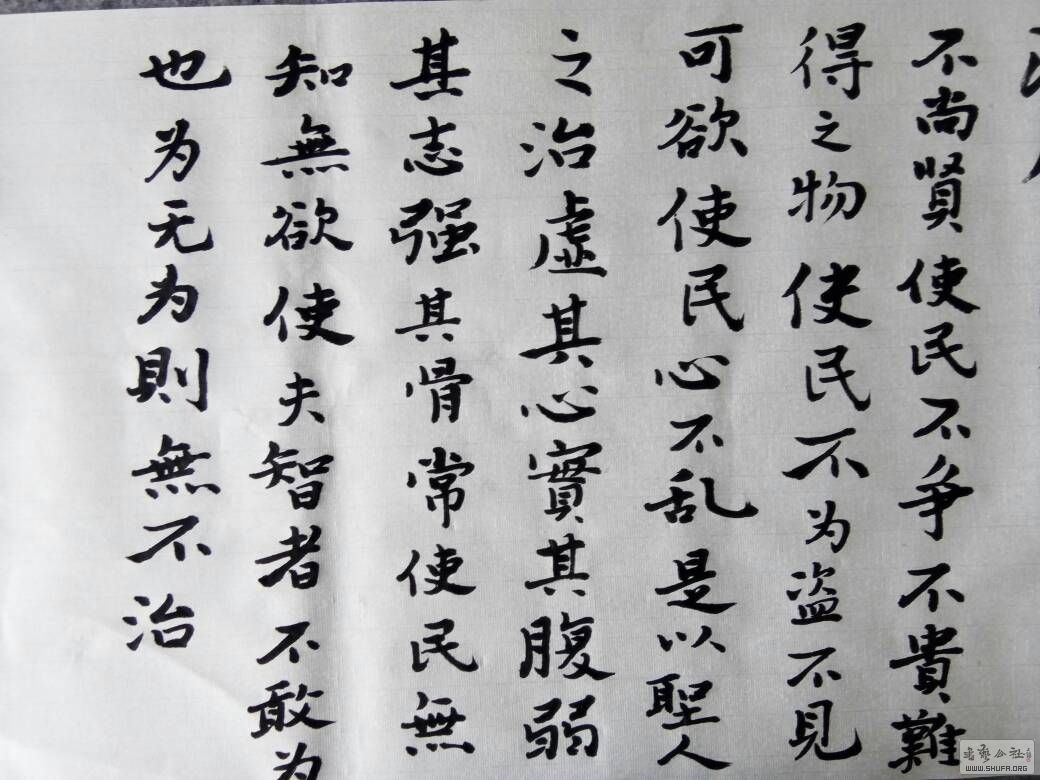 不尚賢使民不争不貴難
得之物使民不为盗不見
可欲使民心不乱是以聖人
之治虛其心實其腹弱
其志强其骨常使民無
知無欲使夫智者不敢为
也为无为則無不治
WWW.SHUFA.ORG